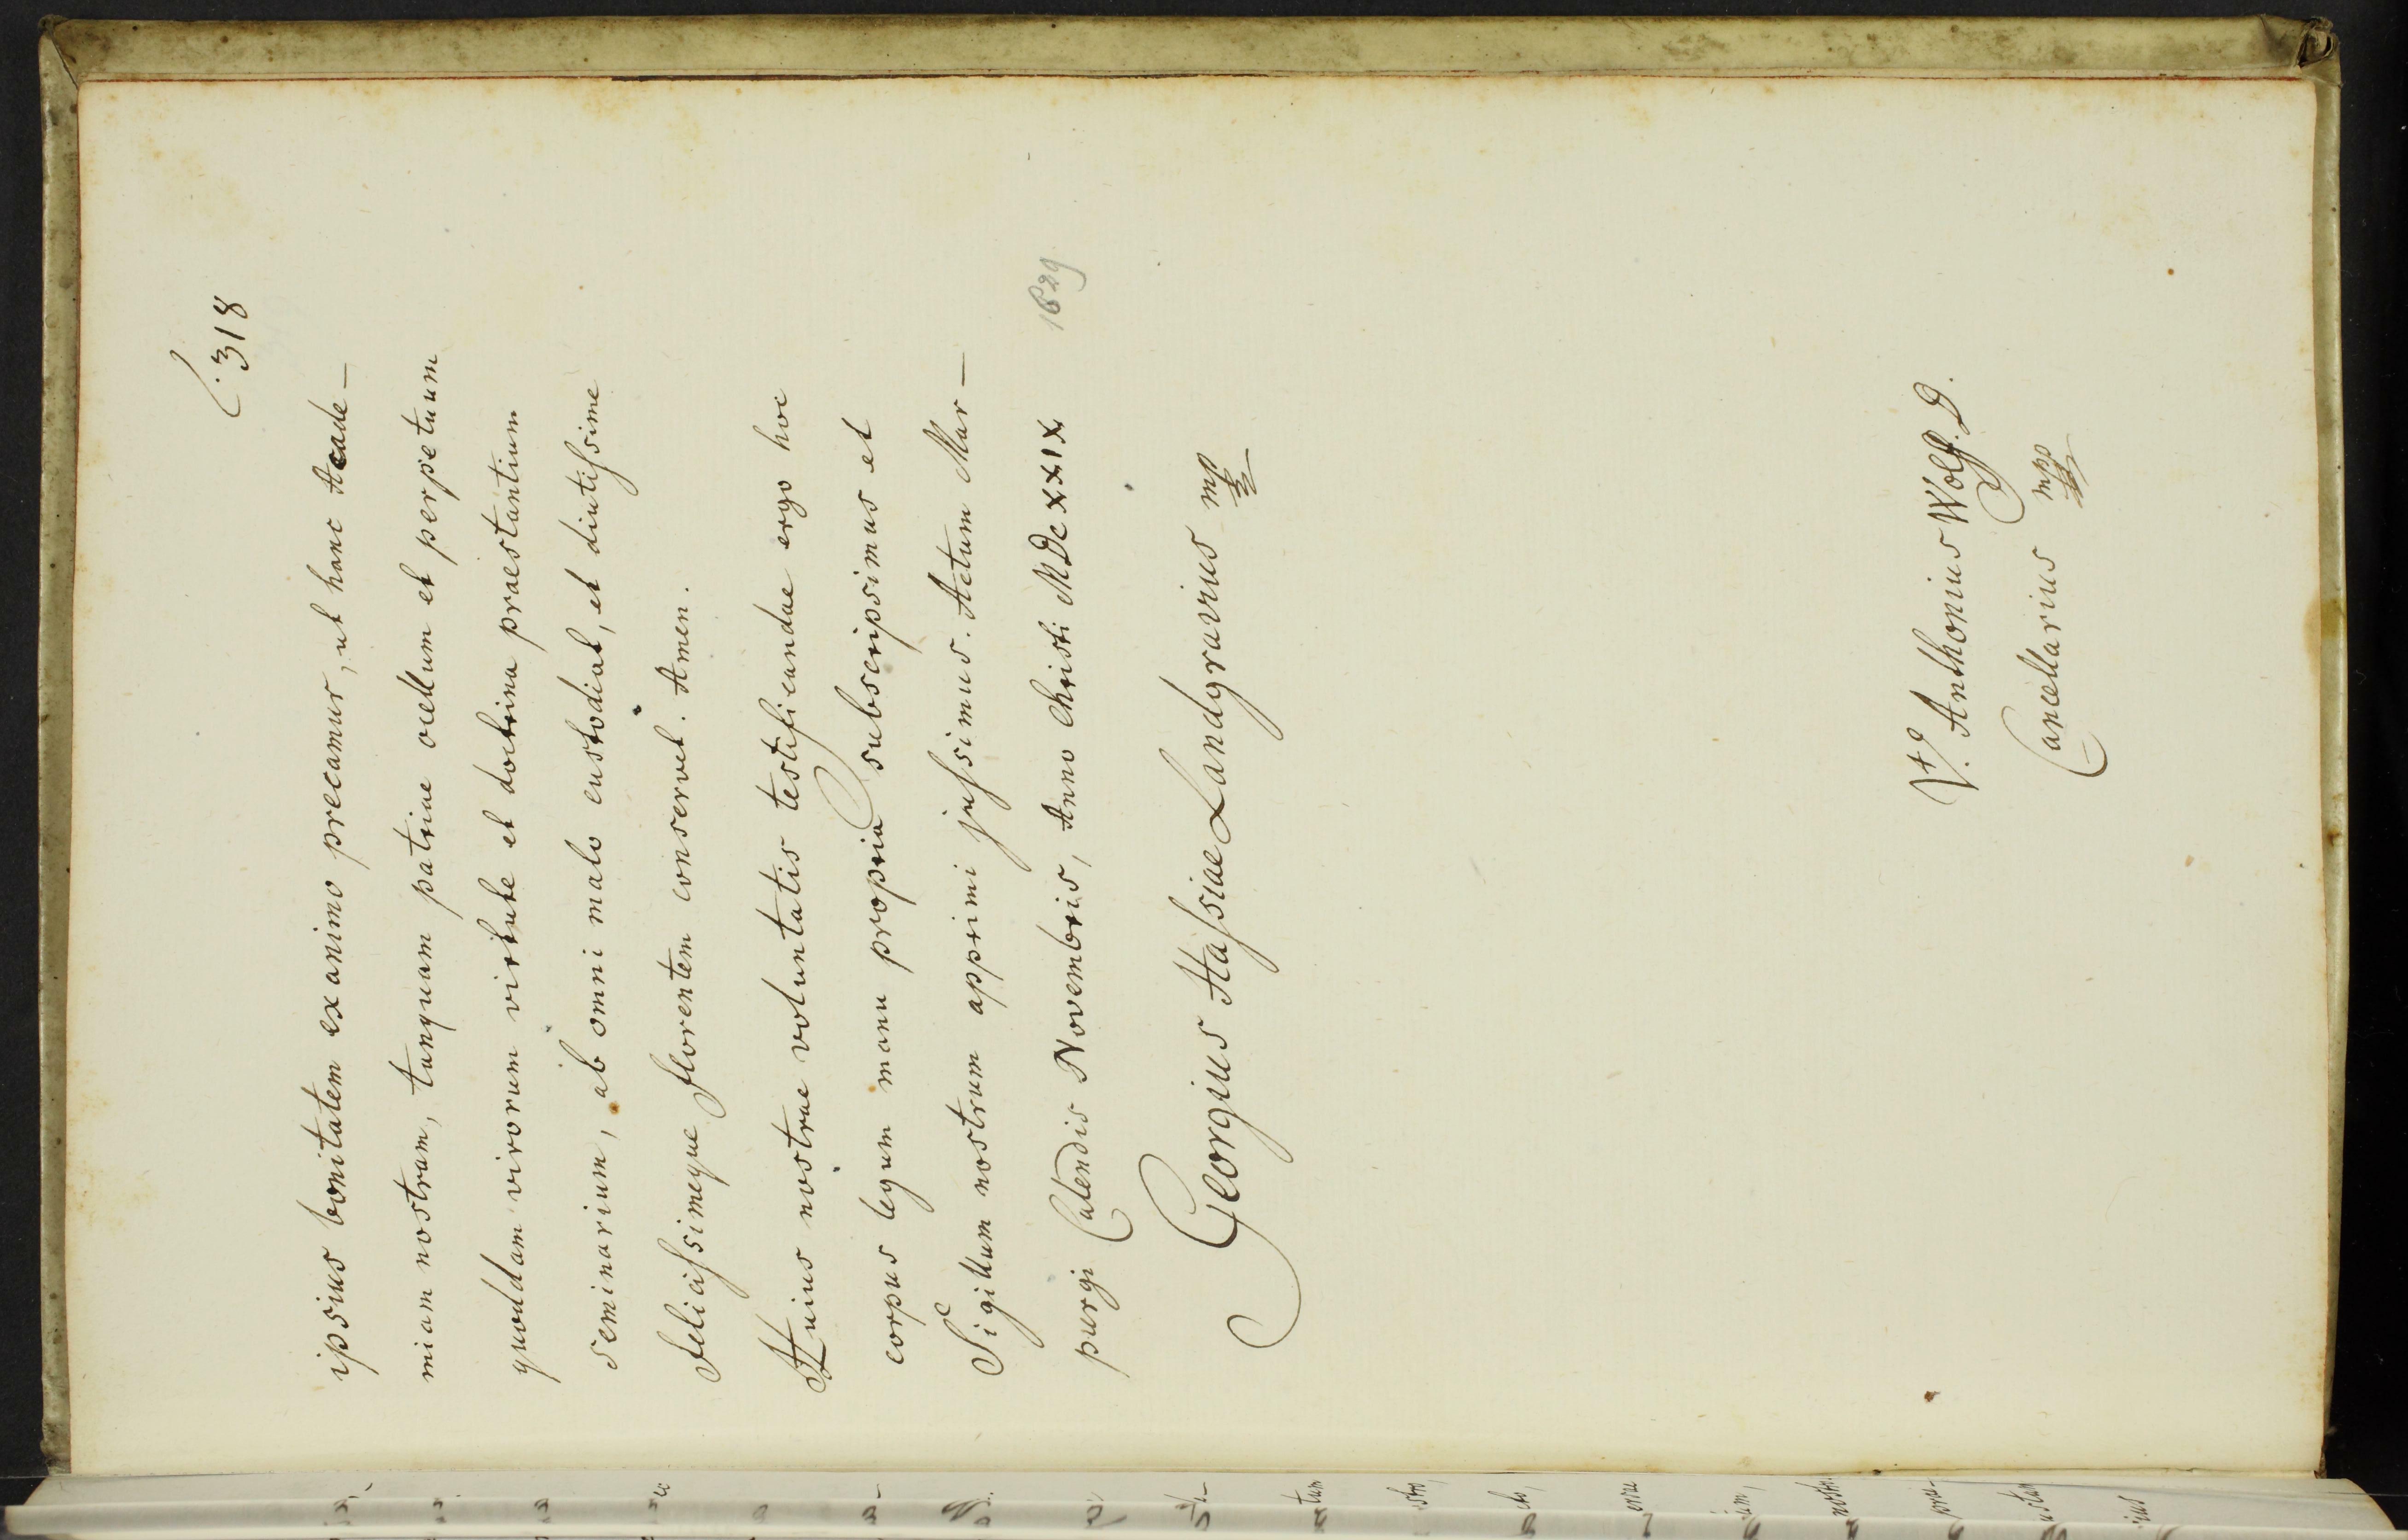 C. 318
ipsius bonitatem ex animo precamur, ut hanc Acade-
miam nostram, tanquam patriae ocellum et perpetuum
quoddam virorum virtute et doctrina praestantium
seminarium, ab omni malo custodiat, et diutissime
felicissimeque florentem conservet. Amen.
Huius nostrae voluntatis testificandae ergo hoc
corpus legum manu propria subscripsimus et
Sigillum nostrum apprimi jussimus. Actum Mar-
purgi Calendis Novembris, Anno Christi MDCXXIX
1629
Georgius Hassiae Landgravius mp
Vt. Anthonius Wolff. D.
Cancellarius mpp